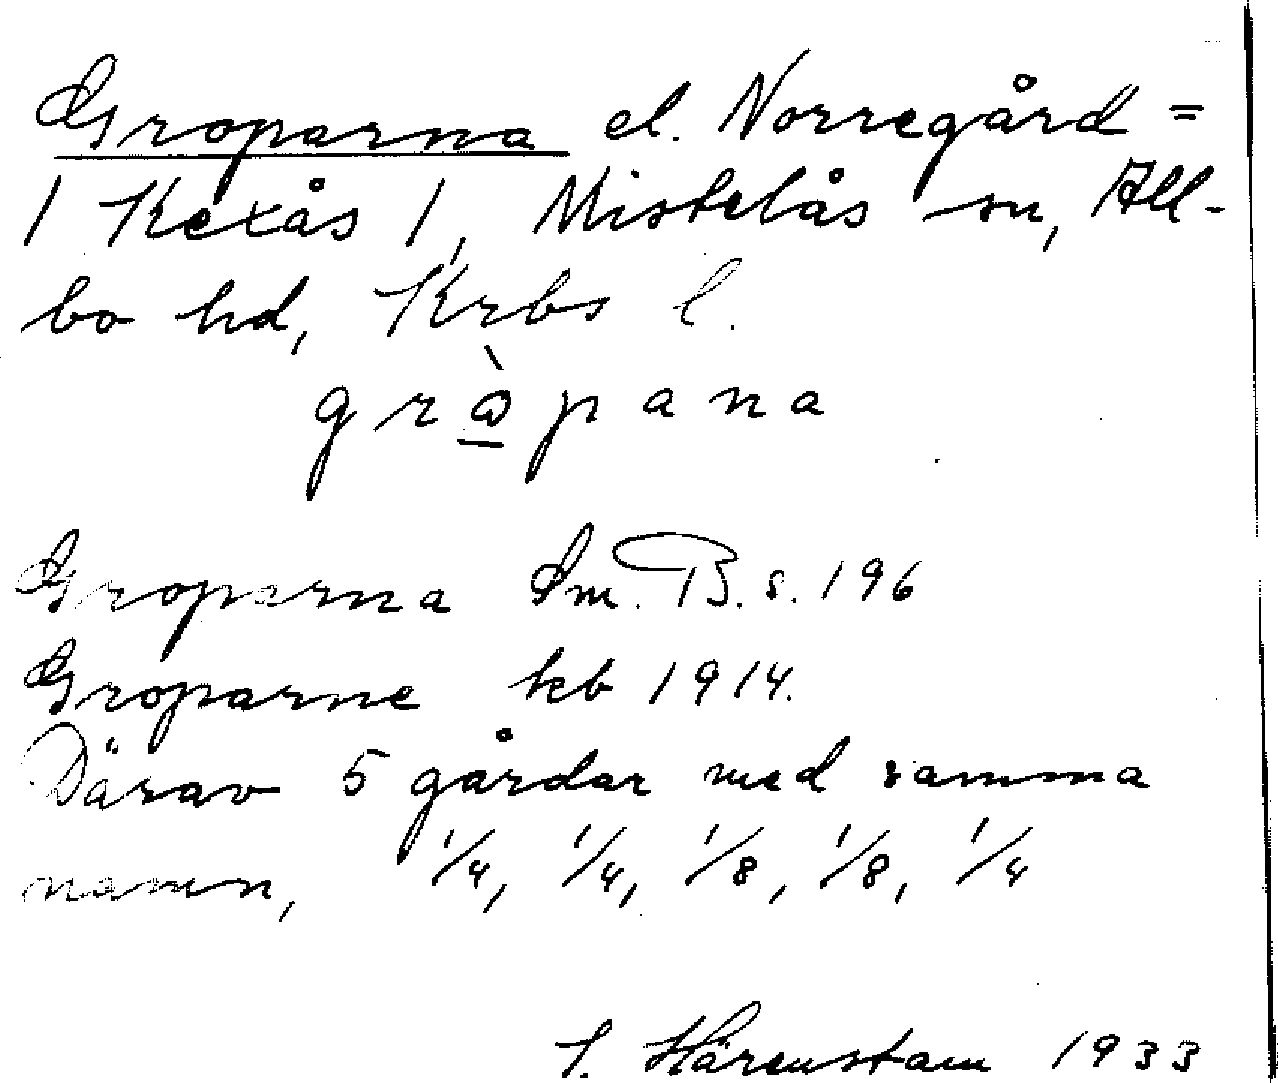 Groparna el. Norregård =
1 Kexås 1, Mistelås sn, All-
bo hd, Krbs l.
gràpana
Groparna Sm. B. s. 196
Groparne kb 1914.
Därav 5 gårdar med samma
namn, 1/4, 1/4, 1/8, 1/8, 1/4
1933